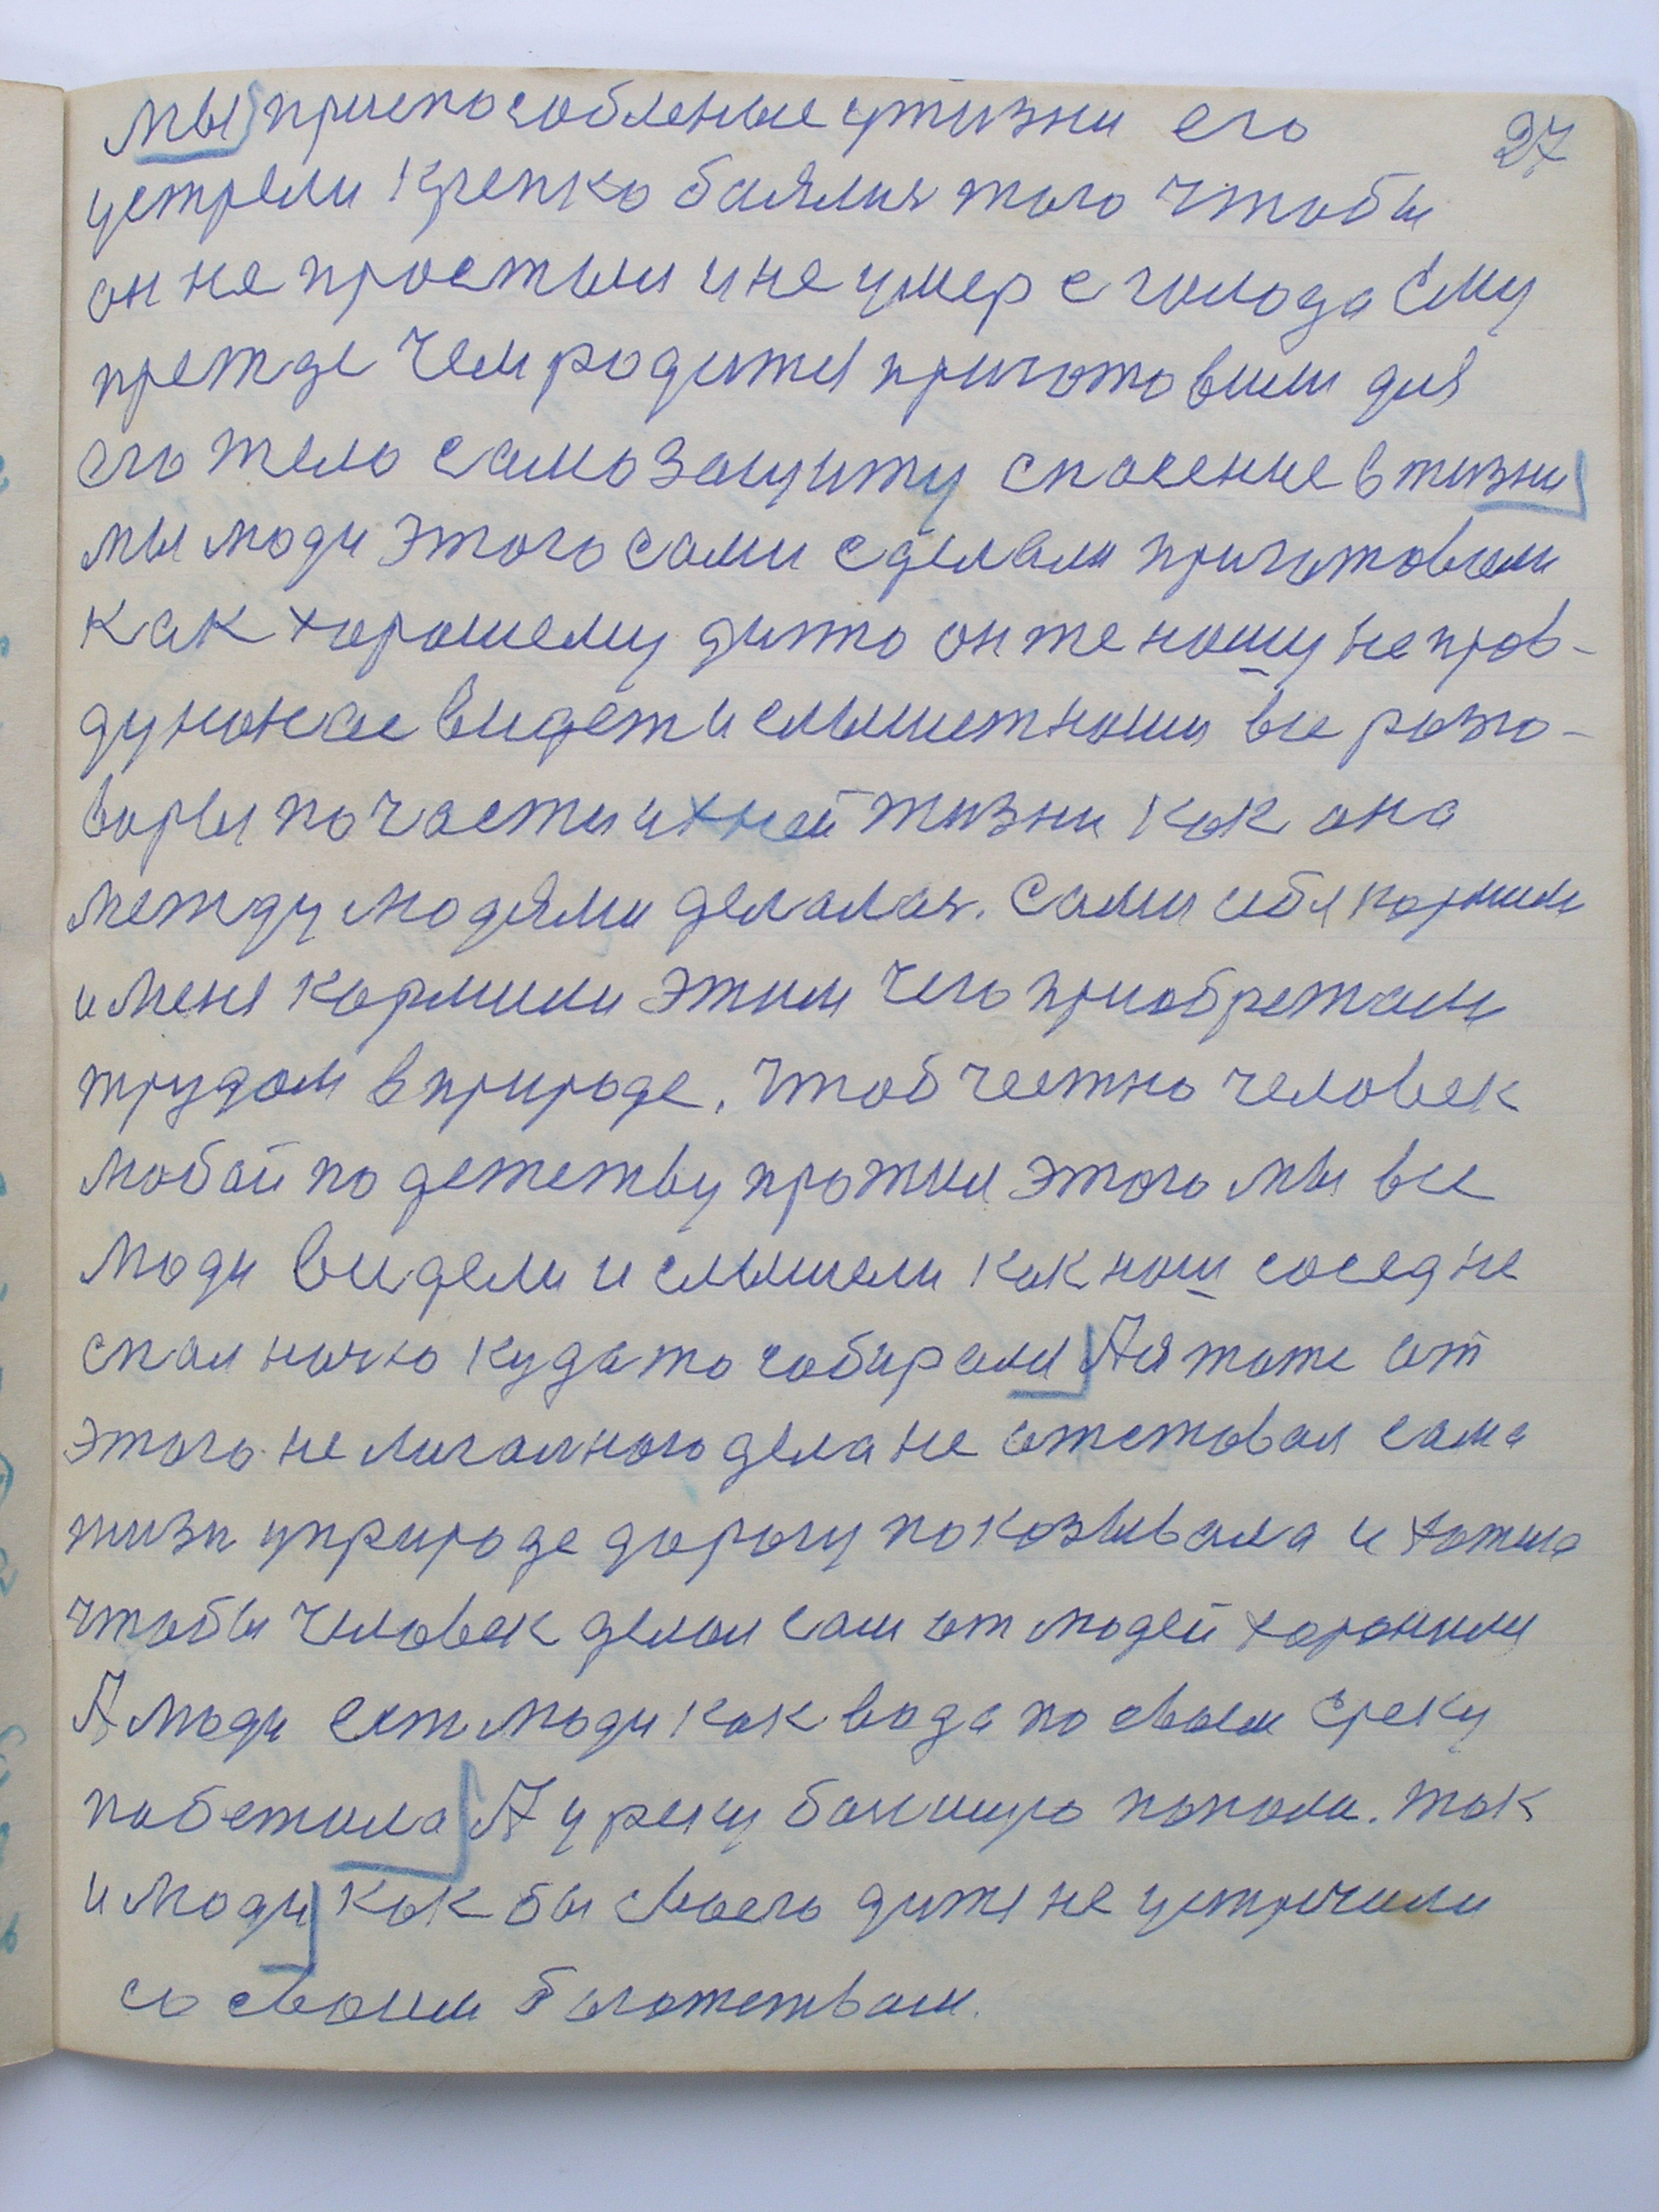 27
мы приспособленые ужизни его
устрели крепко баялися того чтобы
он не простыл и не умер с голода ему
прежде чем родится приготовили для
его тело самозащиту спасение в жизни
мы люди этого сами сделали приготовили
как хорошему дитю он же нашу неправ-
ду нонкае видет и слышит наши все разго-
воры по части ихней жизни как она
между людями делалась. сами себя кормили
и меня кормили этим чего приобретали
трудом в природе. чтоб честно человек
любой по детству прожил этого мы все
люди видели и слышели как наш сосед не
спал ночю кудато собирался А я тоже от
этого не лигалного дела не отстовал сама
жизн уприроде дорогу показывала и хотела
чтобы человек делал сам от людей хоронили
А люди ест люди как вода по своем среку
побежила А у реку болшую попала. так
и люди как бы своего дитя не устречили
со своим богатжеством.